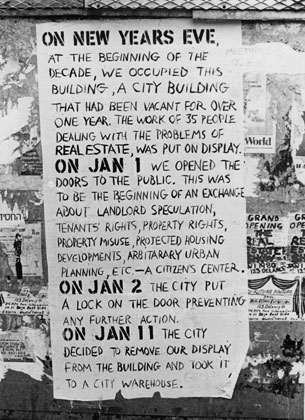 ON NEW YEARS EVE,
AT THE BEGINNING OF THE
DECADE, WE OCCUPIED THIS
BUILDING, A CITY BUILDING
THAT HAD BEEN VACANT FOR OVER
ONE YEAR. THE WORK OF 35 PEOPLE
DEALING WITH THE PROBLEMS OF
REAL ESTATE, WAS PUT ON DISPLAY.
ON JAN 1 WE OPENED THE
DOORS TO THE PUBLIC. THIS WAS
TO BE THE BEGINNING OF AN EXCHANGE
ABOUT LANDLORD SPECULATION,
TENANTS' RIGHTS, PROPERTY RIGHTS,
PROPERTY MISUSE, PROJECTED HOUSING
DEVELOPMENTS, ARBITARARY URBAN
PLANNING, ETC.—A CITIZEN'S CENTER.
ON JAN 2 THE CITY PUT
A LOCK ON THE DOOR PREVENTING
ANY FURTHER ACTION.
ON JAN 11 THE CITY
DECIDED TO REMOVE OUR DISPLAY
FROM THE BUILDING AND TOOK IT
TO A CITY WAREHOUSE.
World
GRAND
OPENING
THE
REAL
GRAND
OPENING